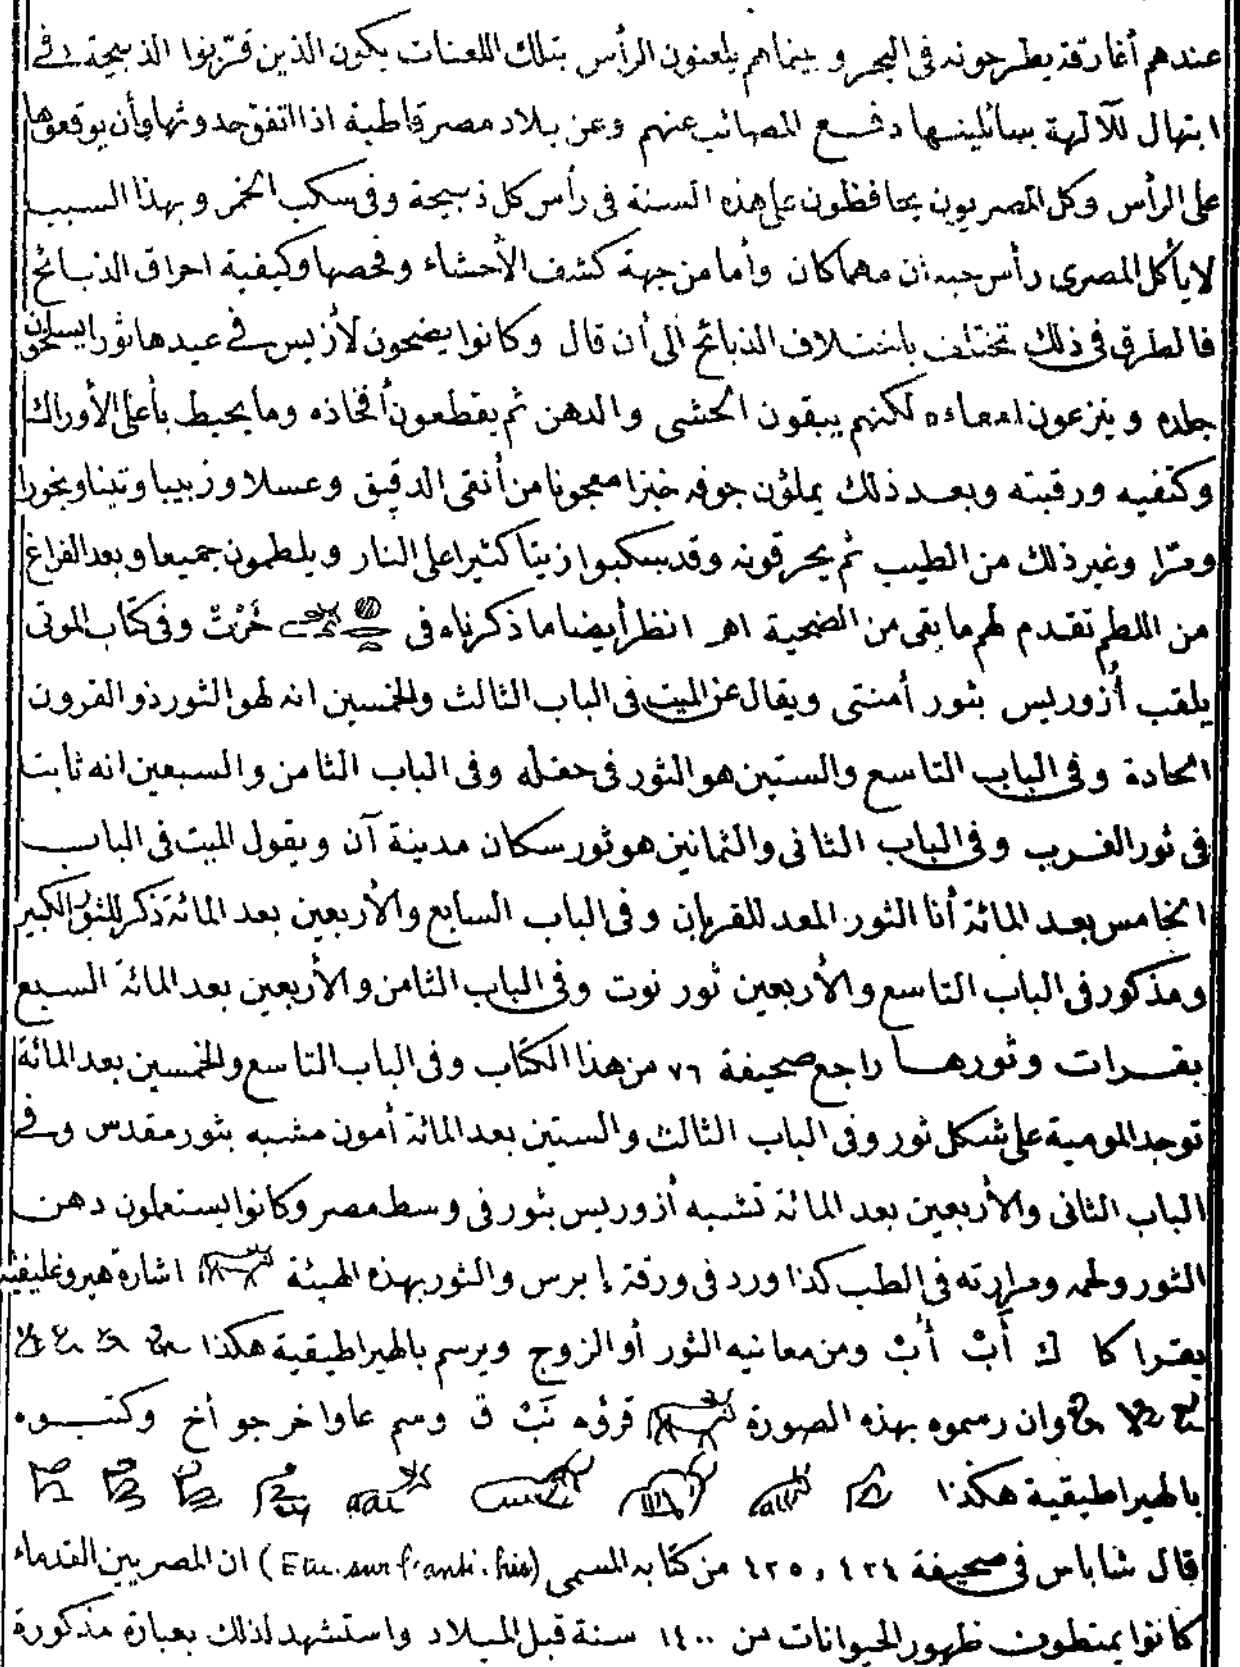 عندهم أغارقة يطرحونه فى البحر وبينماهم يلعنون الرأس بتلك اللعنات يكون الذين قربوا الذبيحة فى
ابتهال للآلهة يسائلينها دفع المصائب عنهم وعن بلاد مصر قاطبة اذا اتفق حدوثها وأن يوقعوها
على الرأس وكل المصريون يحافظون على هذه السنة فى رأس كل ذبيحة وفى سكب الخمر وبهذا السبب
لا يأكل المصرى رأس حيوان مهما كان وأما من جهة كشف الأحشاء وفحصها وكيفية احراق الذبائح
فالطرق فى ذلك تختلف باختلاف الذبائح الى أن قال وكانوا يضحون لأزيس فى عيدها ثورا يسلخون
جلده وينزعون امعاءه لكنهم يبقون الحشى والدهن ثم يقطعون أفخاذه وما يحيط بأعلى الأوراك
وكتفيه ورقبته وبعد ذلك يملؤن جوفه خبزا معجونا من أنقى الدقيق وعسلا وزبيبا وتينا وبخورا
ومرّا وغير ذلك من الطيب ثم يحرقونه وقد سكبوا زيتا كثيرا على النار ويلطمون جميعا وبعد الفراغ
من اللطم تقدم لهم ما بقى من الضحية اهـ انظر أيضا ما ذكرناه فى خَرْتْ وفى كتاب الموتى
يلقب أُزوريس بثور أمنتى ويقال عن الميت فى الباب الثالث والخمسين انه لهو الثور ذو القرون
الحادة وفى الباب التاسع والستين هو الثور فى حقله وفى الباب الثامن والسبعين انه ثابت
فى ثور الغرب وفى الباب الثانى والثمانين هو ثور سكان مدينة آن ويقول الميت فى الباب
الخامس بعد المائة أنا الثور المعد للقربان وفى الباب السابع والأربعين بعد المائة ذكر للثور الكبير
ومذكور فى الباب التاسع والأربعين ثور نوت وفى الباب الثامن والأربعين بعد المائة السبع
بقرات وثورها راجع صحيفة ٧٦ من هذا الكتاب وفى الباب التاسع والخمسين بعد المائة
توجد المومية على شكل ثور وفى الباب الثالث والستين بعد المائة أمون مشبه بثور مقدس وفى
الباب الثانى والأربعين بعد المائة تشبه أزوريس بثور فى وسط مصر وكانوا يستعملون دهن
الثور ولحمه ومرارته فى الطب كذا ورد فى ورقة إبرس والثور بهذه الهيئة اشارة هيروغليفية
يقرا كا ك أَبْ أُبْ ومن معانيه الثور أو الزوج ويرسم بالهيراطيقية هكذا
وان رسموه بهذه الصورة قرؤه نَبْ ق وسم عاوا خر جو أخ وكتبوه
بالهيراطيقية هكذا
قال شاباس فى صحيفة ٤٢٤ و ٤٢٥ من كتابه المسمى (Etu. sur l'anti. his) ان المصريين القدماء
كانوا يمتطون ظهور الحيوانات من ١٤٠٠ سنة قبل الميلاد واستشهد لذلك بعبارة مذكورة